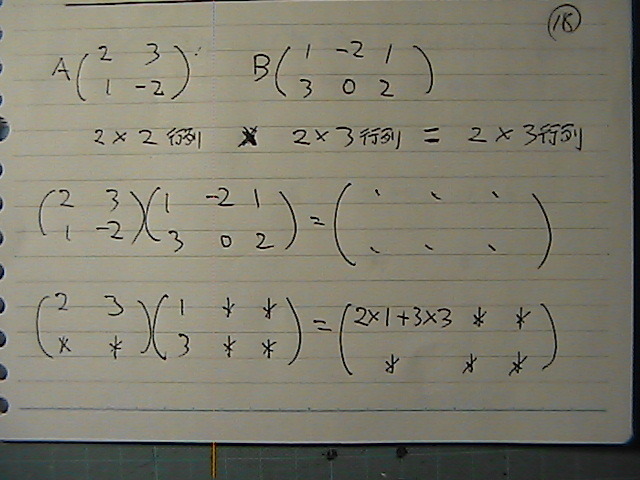 ⑱
A ( 2 3 ) B ( 1 -2 1 )
( 1 -2 ) ( 3 0 2 )
2×2行列 × 2×3行列 = 2×3行列
( 2 3 ) ( 1 -2 1 ) = ( ` ` ` )
( 1 -2 ) ( 3 0 2 ) ( ` ` ` )
( 2 3 ) ( 1 * * ) = ( 2×1+3×3 * * )
( * * ) ( 3 * * ) ( * * * )